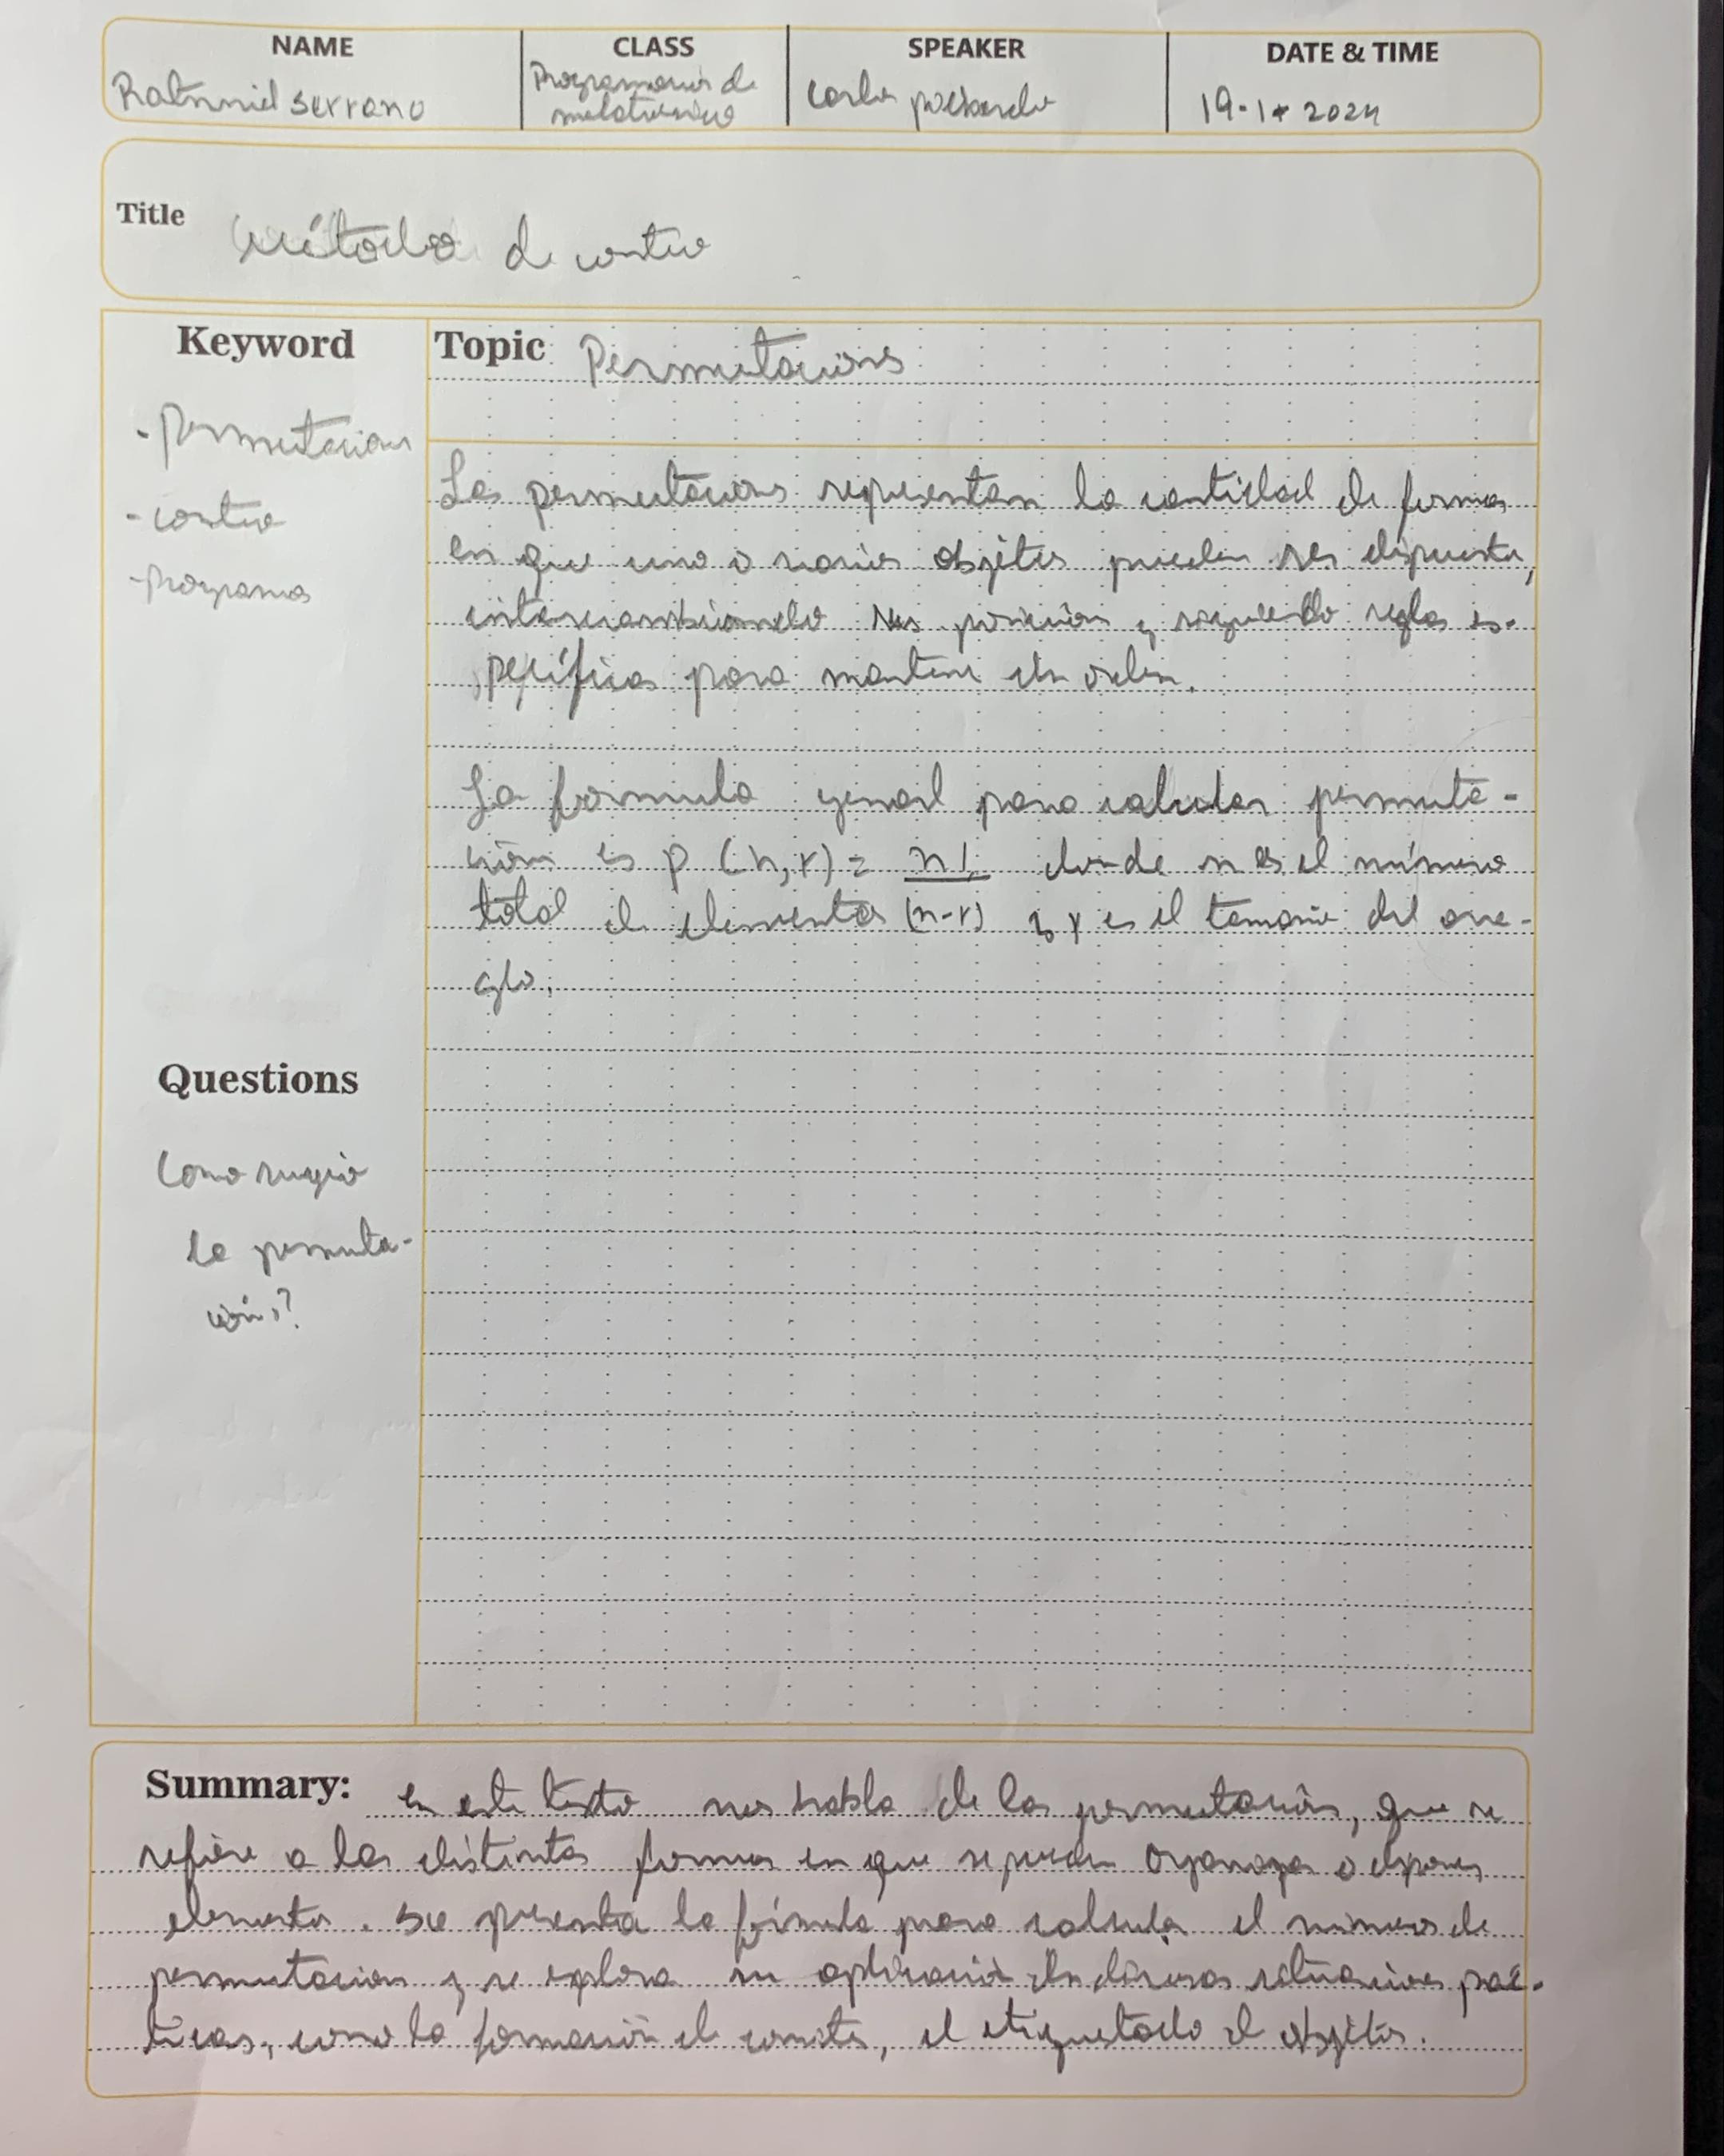 NAME CLASS SPEAKER DATE & TIME
Ratnniel serrano Programación de Carlos pichardo 19-1* 2024
Title Método de conteo
Keyword
- permutacion
- conteo
- programas
Topic Permutacions
Las permutacions representan la cantidad de formas
en que uno o varios objetos pueden ser dispuesta,
intercambiando sus posicion y siguiendo reglas es-
pecíficas para mantene un orden.
La formula general para calcular permuta-
ción es p (n,r) = n! donde n es el número
total de elementos (n-r) y r es el tamano del arre-
glo.
Questions
Como surgio
la permuta-
ción?
Summary: en este texto nos habla de las permutación, que se
refiere a las distintas formas en que se pueden Organozar o disponer
elementos. se presenta la fórmula para calcular el número de
permutacion y se explora su aplicación en diversas situaciones prác-
ticas, como la formación de comites, el etiquetado de objetos.